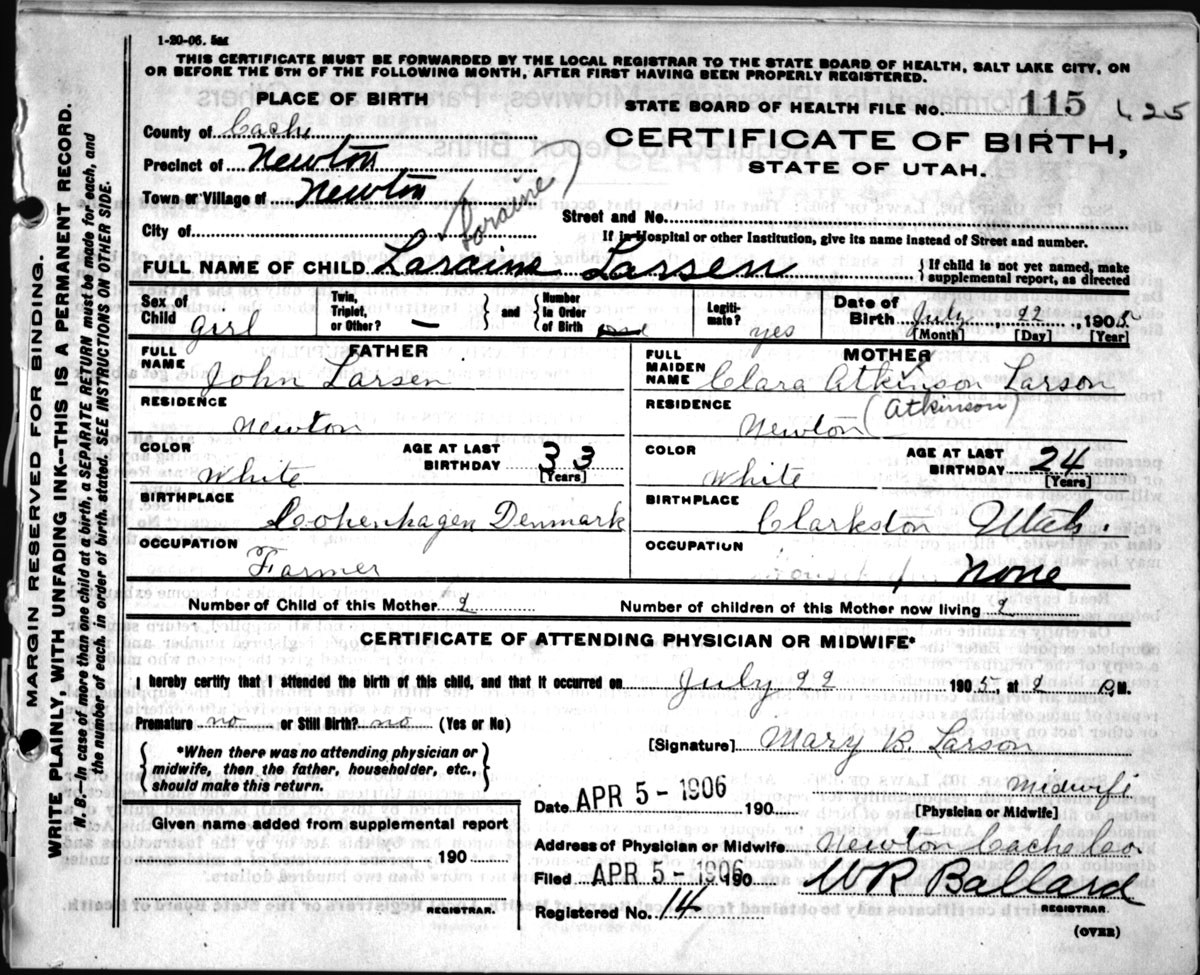 1-20-06. 5m
THIS CERTIFICATE MUST BE FORWARDED BY THE LOCAL REGISTRAR TO THE STATE BOARD OF HEALTH, SALT LAKE CITY, ON
OR BEFORE THE 5TH OF THE FOLLOWING MONTH, AFTER FIRST HAVING BEEN PROPERLY REGISTERED.
PLACE OF BIRTH
STATE BOARD OF HEALTH FILE No. 115 625
County of Cache
CERTIFICATE OF BIRTH,
Precinct of Newton
STATE OF UTAH.
Town or Village of Newton
(Loraine)
Street and No.
City of
If in Hospital or other Institution, give its name instead of Street and number.
FULL NAME OF CHILD Laraine Larsen
{ If child is not yet named, make
supplemental report, as directed
Sex of Child girl
Twin, Triplet, or Other? —
and
Number in Order of Birth
Legitimate? yes
Date of Birth July 22 1905
[Month] [Day] [Year]
FATHER
FULL NAME John Larsen
RESIDENCE Newton
COLOR White
AGE AT LAST BIRTHDAY 33
[Years]
BIRTHPLACE Cohenhagen Denmark
OCCUPATION Farmer
MOTHER
FULL MAIDEN NAME Clara Atkinson Larson
(Atkinson)
RESIDENCE Newton
COLOR White
AGE AT LAST BIRTHDAY 24
[Years]
BIRTHPLACE Clarkston Utah.
OCCUPATION none
Number of Child of this Mother 2
Number of children of this Mother now living 2
CERTIFICATE OF ATTENDING PHYSICIAN OR MIDWIFE*
I hereby certify that I attended the birth of this child, and that it occurred on July 22 1905, at 2 P.M.
Premature no or Still Birth? no (Yes or No)
{ *When there was no attending physician or
midwife, then the father, householder, etc., }
should make this return.
[Signature] Mary B. Larson
Midwife
[Physician or Midwife]
Date APR 5 - 1906 190
Given name added from supplemental report
190
REGISTRAR.
Address of Physician or Midwife Newton Cache Co.
Filed APR 5 - 1906 190 W R Ballard
REGISTRAR.
Registered No. 14
(OVER)
MARGIN RESERVED FOR BINDING.
WRITE PLAINLY WITH UNFADING INK--THIS IS A PERMANENT RECORD.
N. B.--In case of more than one child at a birth, a SEPARATE RETURN must be made for each, and
the number of each, in order of birth, stated. SEE INSTRUCTIONS ON OTHER SIDE.